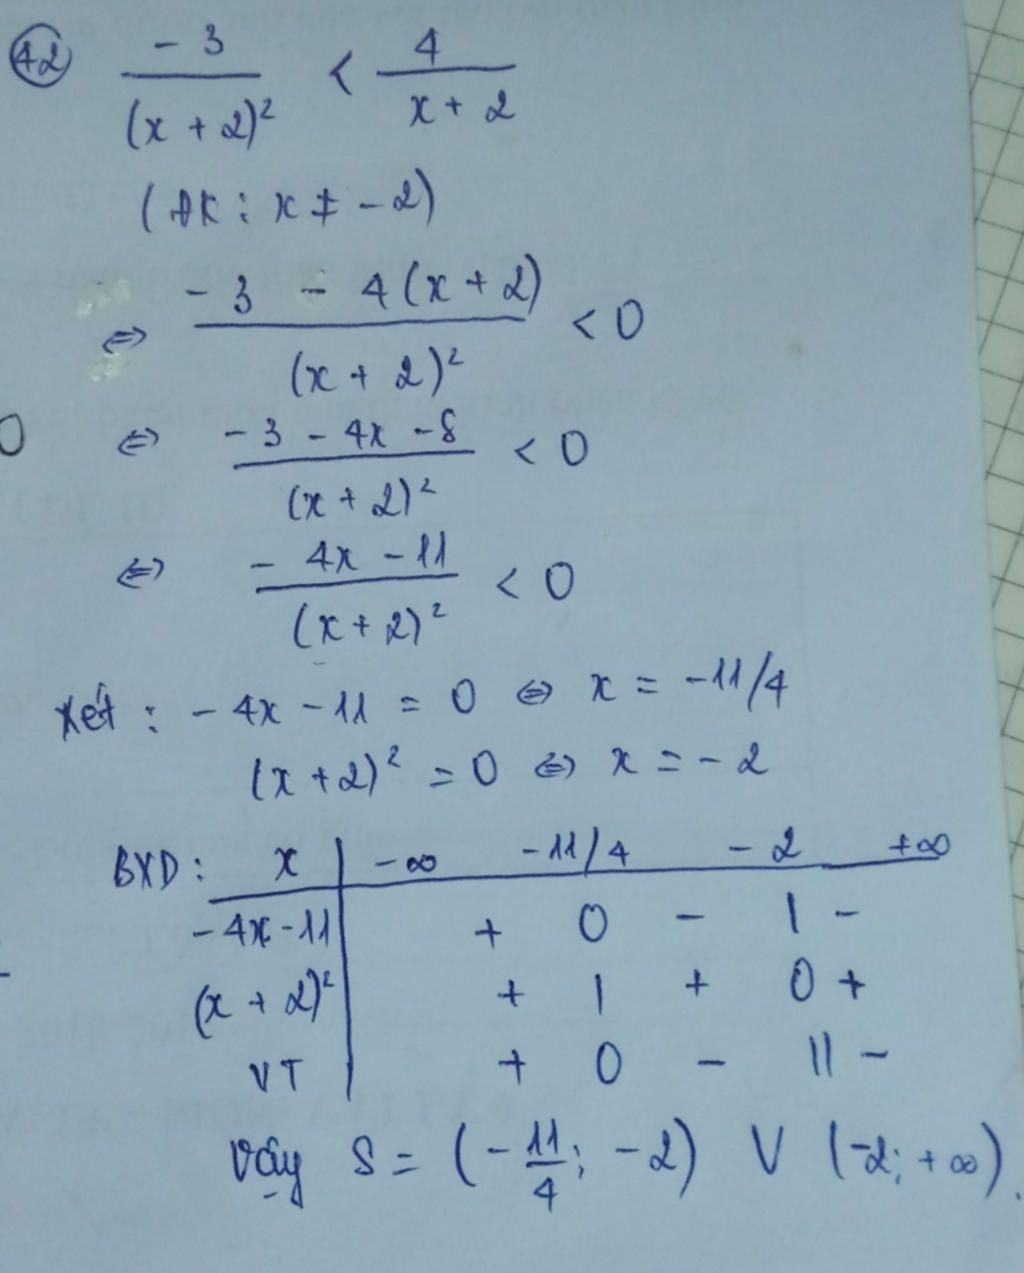 42) -3/(x + 2)² < 4/(x + 2)
(ĐK : x ≠ -2)
⇔ (-3 - 4(x + 2))/(x + 2)² < 0
⇔ (-3 - 4x - 8)/(x + 2)² < 0
⇔ (-4x - 11)/(x + 2)² < 0
Xét : -4x - 11 = 0 ⇔ x = -11/4
(x + 2)² = 0 ⇔ x = -2
BXD : x | -∞ -11/4 -2 +∞
-4x - 11 | + 0 - | -
(x + 2)² | + | + 0 +
VT | + 0 - || -
Vậy S = (-11/4; -2) V (-2; +∞).